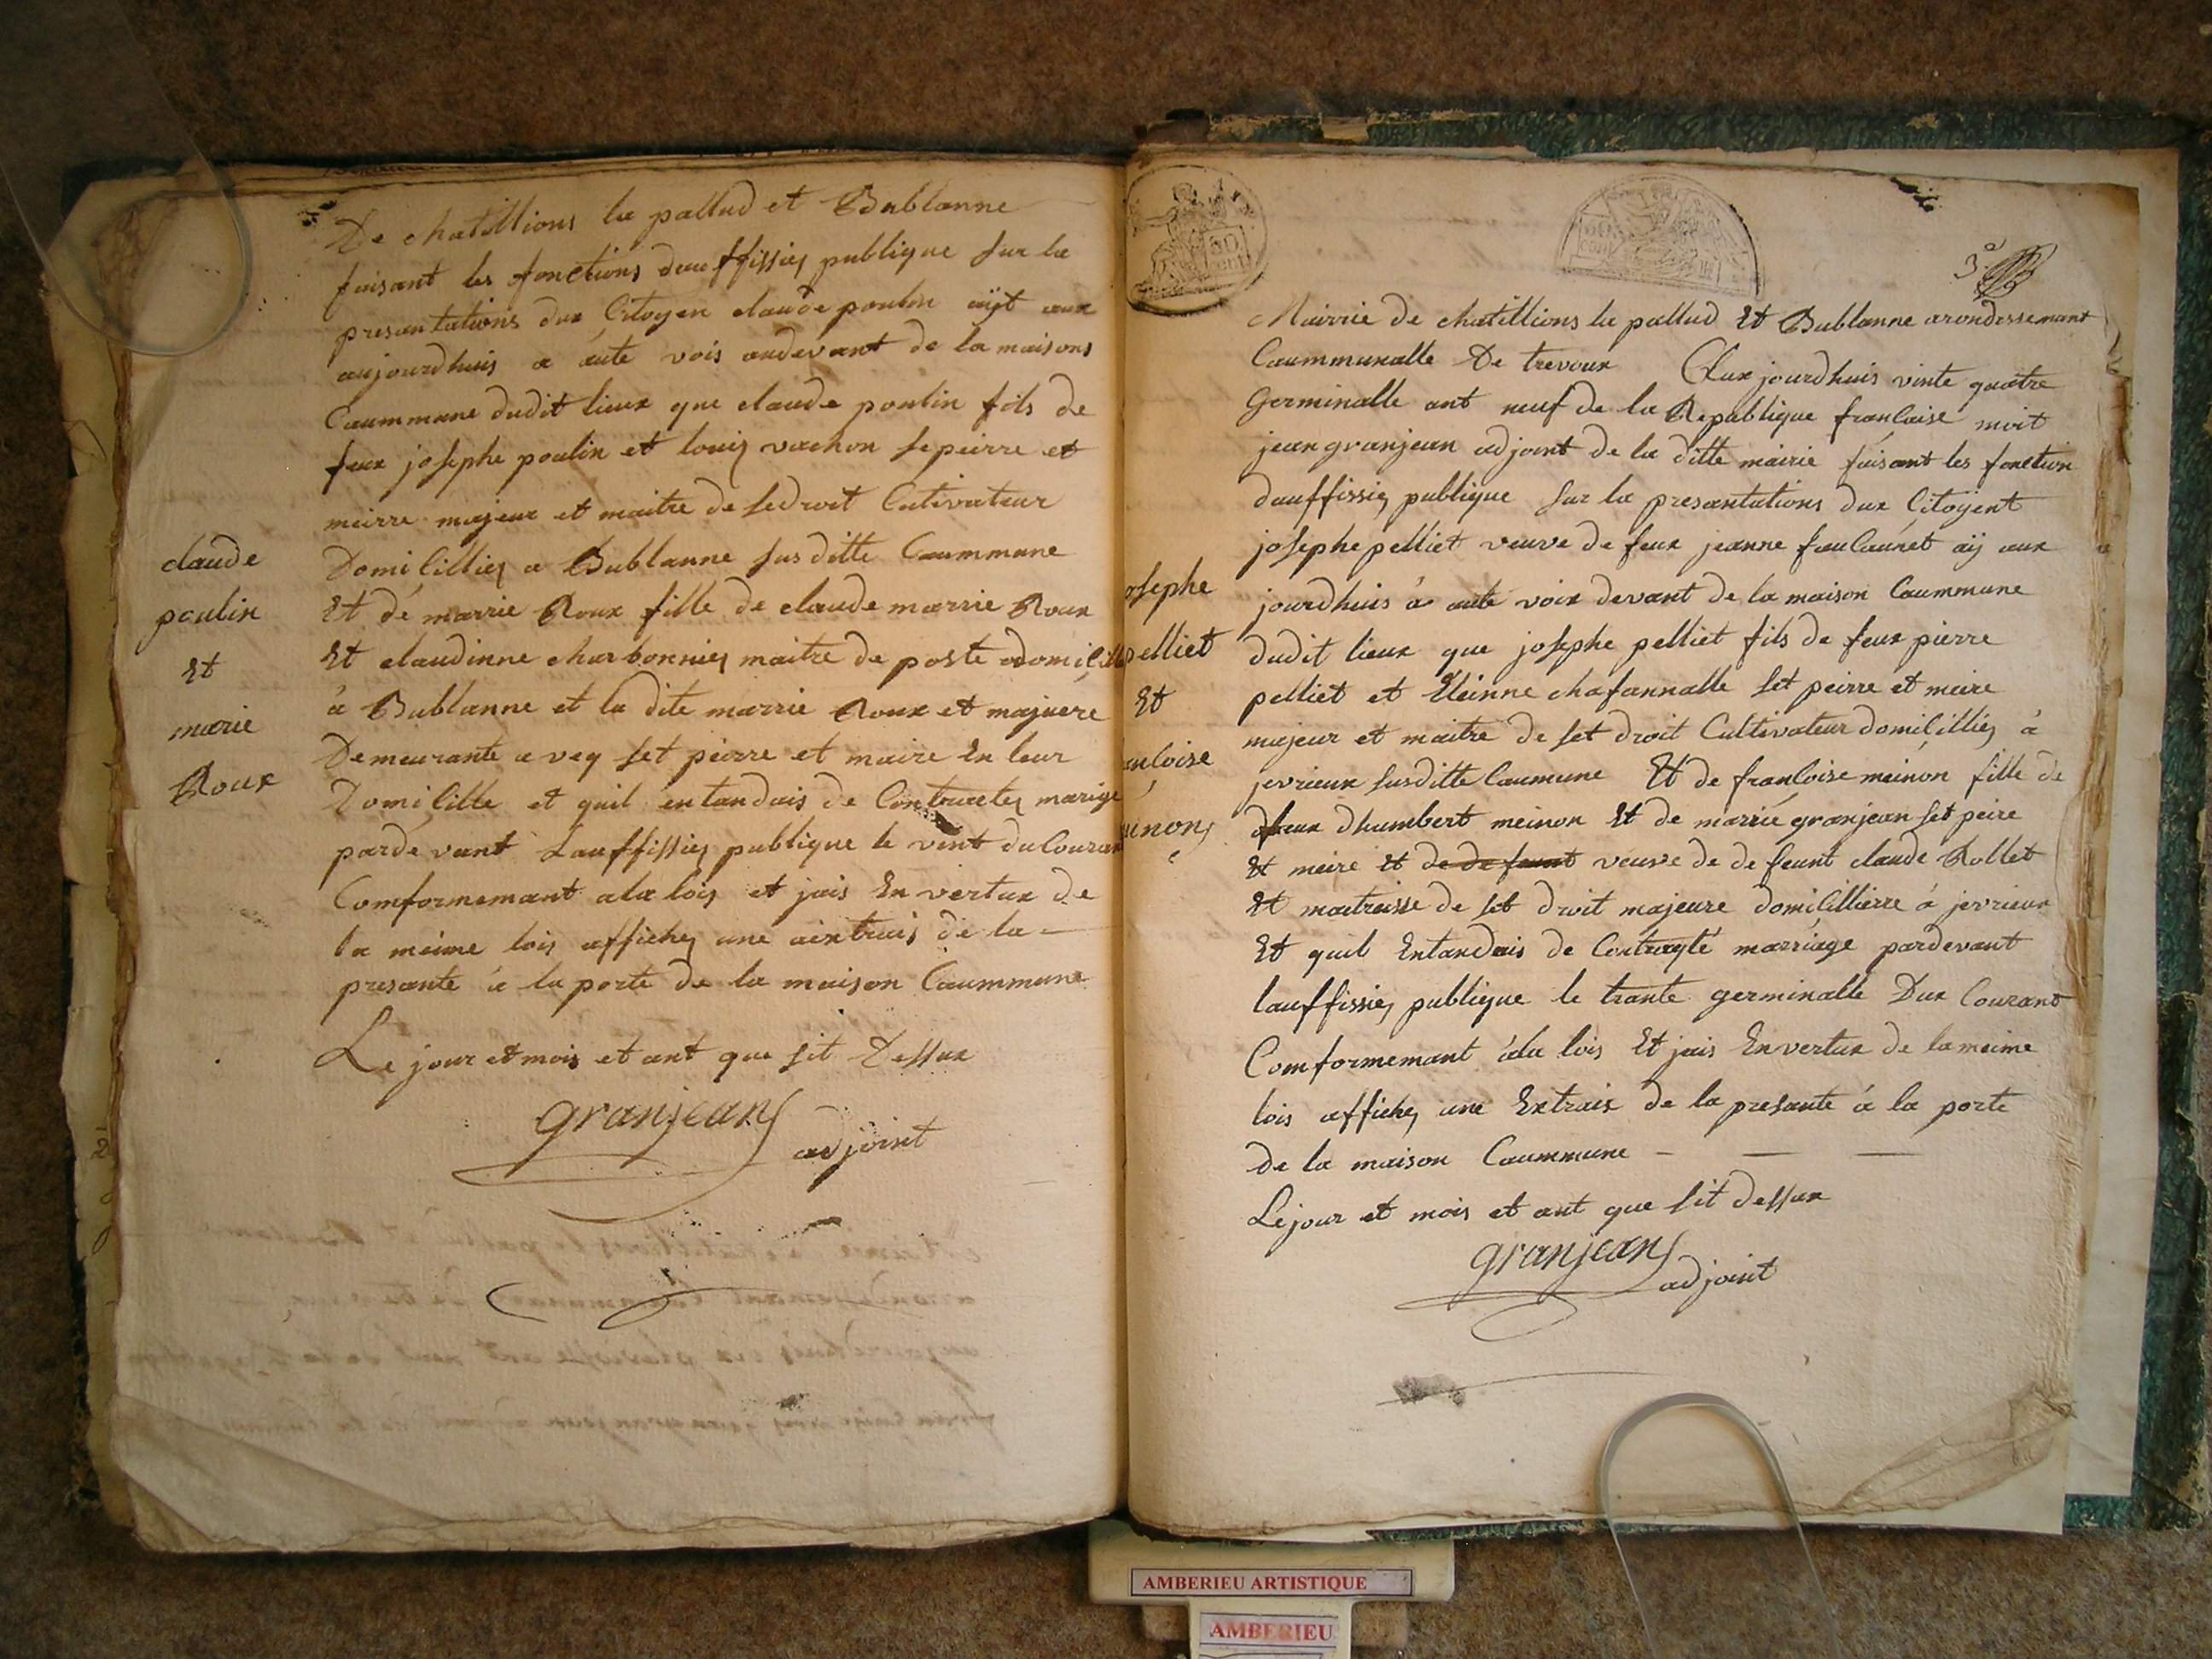 De chatillions la pallud et Bublanne
faisant les fonctions dauffissiez publique sur la
presantations dux Citoyen claude poulin aÿt aux
aujourdhuis a aute vois audevant de la maisons
Caummune dudit lieux que claude poulin fils de
feux josephe poulin et louiz vachon se peirre et
meirre majeur et maitre de se droit Cutivateur
Domicilliez a Bublanne susditte Caummune
Et dé marrie Roux fille de claude marrie Roux
Et claudinne charbonniez maitre de poste adomicill
à Bublanne et la dite marrie Roux et majuere
Demeurante a vey set peirre et maire En leur
Domicille et quil entandais de Contractez marige
pardé vant Lauffissiez publique le vint du Couran
Comformemant a la loiz et jais En vertux de
la meime lois affichez une aixtrais de la
presante à la porte de la maison Caummune
Le jour et mois et ant que sit Dessux
granjean
adjoint
claude
poulin
Et
marie
Roux
50
cent
3
Mairrie de chatillions la pallud Et Bublanne arondessemant
Caummunalle De trevoux Aux jourdhuis vinte quatre
Germinalle ant neuf de la Republique francaise moit
jean granjean adjoint de la ditte mairie faisant les fonction
dauffissiez publique sur la presantations dux Citoÿent
josephe pelliet veuve de feux jeanne faucaunet aÿ aux
jourdhuis à aute voix devant de la maison Caummune
dudit lieux que josephe pelliet fils de feux pierre
pelliet et Eleinne chafannalle set peirre et meire
majeur et maitre de set droit Cultivateur domicilliez à
jevrieux susditte Caumune Et de francoise meinon fille de
feux dhumbert meinon Et de marrié granjean set peire
Et meire et de de feunt veuve de de feunt claude Rollet
Et maitraisse de set droit majeure domicillierre à jevrieux
Et quil Entandais de Contrayté marriage pardevant
lauffissiez publique le trante germinalle Dux Courant
Comformemant à la lois Et jais En vertux de la meime
lois affichez une Extraix de la presante à la porte
de la maison Caummune
Le jour et mois et ant que sit dessux
granjean
adjoint
osephe
pelliet
Et
ancoise
inon
AMBERIEU ARTISTIQUE
AMBERIEU